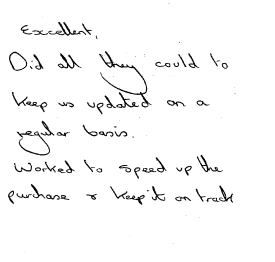 Excellent,
Did all they could to
keep us updated on a
regular basis.
Worked to speed up the
purchase & keep it on track